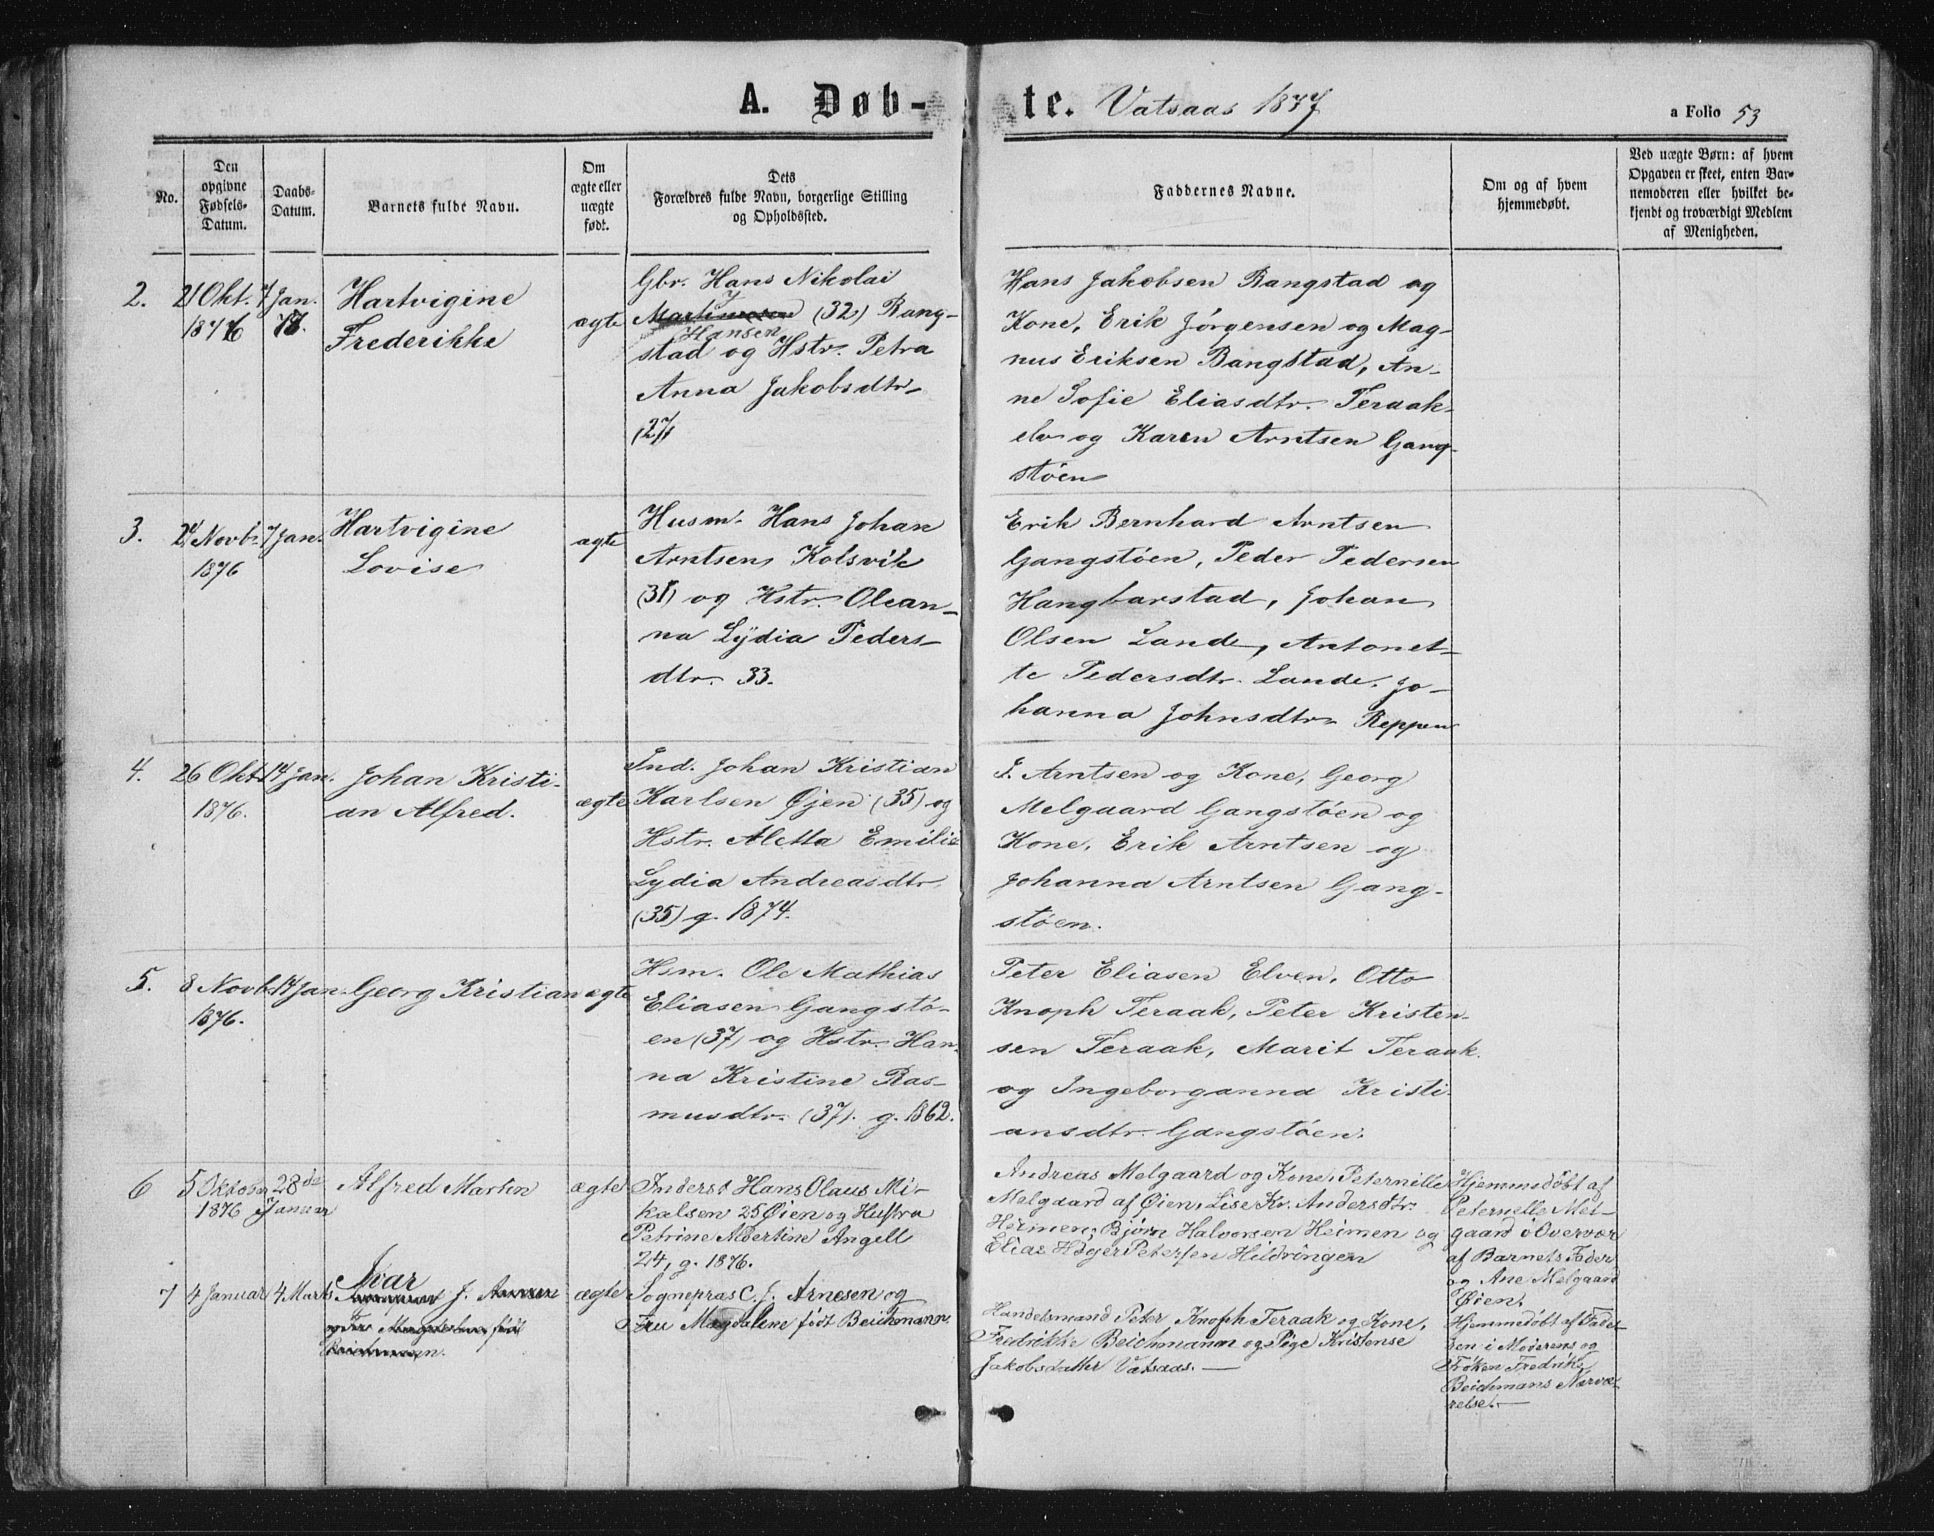 A. Døb-te. Vatsaas 1877
a Folio 53
No.
Den
opgivne
Fødsels-
Datum.
Daabs-
Datum.
Barnets fulde Navn.
Om
ægte eller
uægte
født.
Dets
Forældres fulde Navn, borgerlige Stilling
og Opholdssted.
Faddernes Navne.
Om og af hvem
hjemmedøbt.
Ved uægte Børn: af hvem
Opgaven er skeet, enten Bar-
nemoderen eller hvilket be-
kjendt og troværdigt Medlem
af Menigheden.
2.
21 Okt.
1876
7 Jan.
77.
Hartvigine
Frederikke
ægte
Gbr. Hans Nikolai
Martinesen (32) Bang-
Hansen
stad og Hstr. Petra
Anna Jakobsdtr
(27)
Hans Jakobsen Bangstad og
Kone, Erik Jörgensen og Mag-
nus Eriksen Bangstad, An-
ne Sofie Eliasdtr. Teraak-
elv og Karen Arntsen Gang-
stöen
3.
24 Novb.
1876
7 Jan.
Hartvigine
Lovise
ægte
Husm. Hans Johan
Arntsen Kolsvik
(31) og Hstr. Olean-
na Lydia Peders-
dtr. 33.
Erik Bernhard Arntsen
Gangstöen, Peder Pedersen
Hangbarstad, Johan
Olsen Lande, Antonet-
te Pedersdtr. Lande, Jo-
hanna Johnsdtr. Reppen
4.
26 Okt.
1876.
14 Jan.
Johan Kristi-
an Alfred.
ægte
Ind. Johan Kristian
Karlsen Øjen (35) og
Hstr. Aletta Emilie
Lydia Andreasdtr
(35) g. 1874.
J. Arntsen og Kone, Georg
Melgaard Gangstöen og
Kone, Erik Arntsen og
Johanna Arntsen Gang-
stöen.
5.
8 Novb.
1876.
14 Jan.
Georg Kristian
ægte
Hsm. Ole Mathias
Eliasen Gangstö-
en (37) og Hstr. Han-
na Kristine Ras-
musdtr. (37). g. 1862.
Peter Eliasen Elven, Otto
Knoph Teraak, Peter Kristen-
sen Teraak, Marit Teraak
og Ingeborganna Kristi-
ansdtr. Gangstöen.
6
5 Oktober
1876
28de
Januar
Alfred Martin
ægte
Inderst Hans Olaus Mi-
kalsen 25 Øien og Hustru
Petrine Albertine Angell
24, g. 1876.
Andreas Melgaard og Kone, Peternille
Melgaard af Øien, Lise Kr. Andersdtr.
Heimen, Bjørn Halvorsen Heimen og
Elias Høyer Petersen Hildringen
Hjemmedöbt af
Peternelle Mel-
gaard i Overvær
af Barnets Fader
og Ane Melgaard
Øien.
7
4 Januar
4 Marts
Ivar
J.
ægte
Sognepræs C. J. Arnesen og
Fru Magdalene födt Beichmann
Handelsmand Peter Knoph Teraak og Kone,
Fredrikke Beichmann og Pige Kristense
Jakobsdatter Vatsaas.—
Hjemmedöbt af Fade-
ren i Moderens og
Fröken Fredrikke
Beichmans Nærvæ-
relse.—